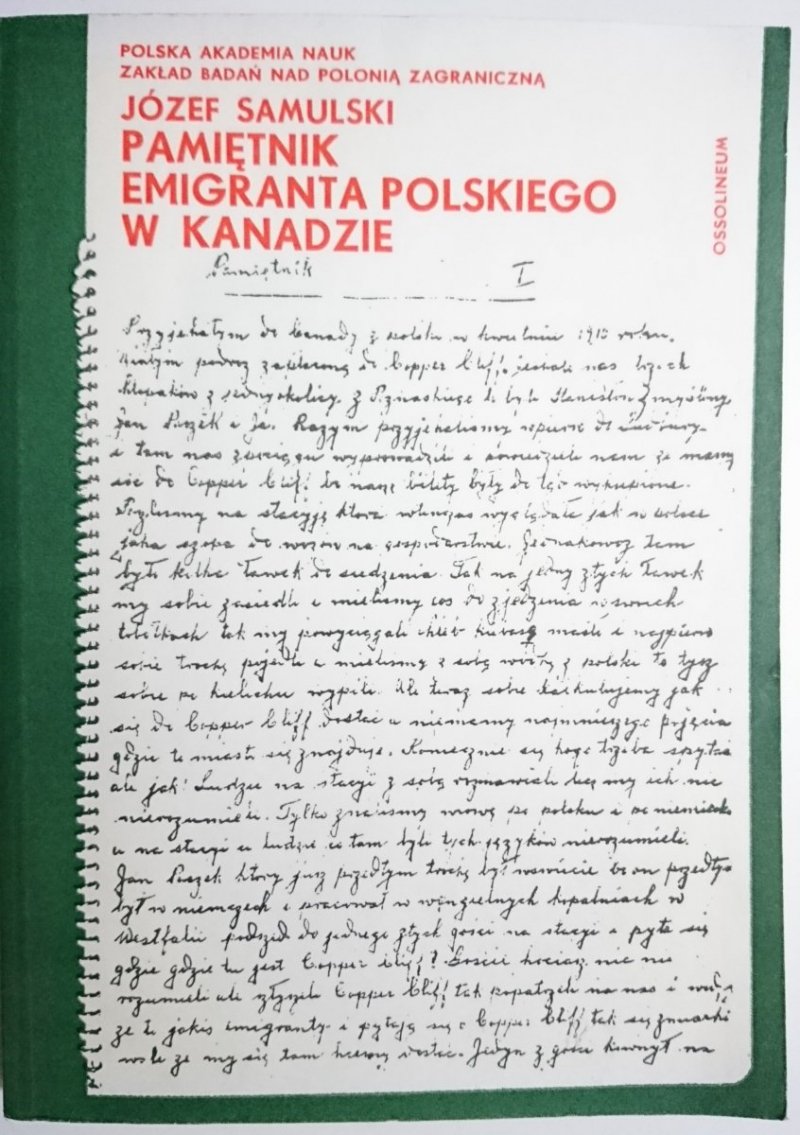 POLSKA AKADEMIA NAUK
ZAKŁAD BADAŃ NAD POLONIĄ ZAGRANICZNĄ
JÓZEF SAMULSKI
PAMIĘTNIK
EMIGRANTA POLSKIEGO
W KANADZIE
OSSOLINEUM
Pamiętnik I
Przyjehałym do Canady z polski w kwietniu 1910 roku.
Miałym podruz zapłaconą do Copper Cliff. jechało nas trzech
chłopaków z jednyokolicy z Poznaskiego to był Stanisław
Jan Paszek i Ja. Razym przyjehalismy wpierw do
i tam nas wyprowadzili i powiedzieli nam ze mamy
isc do Copper Cliff bo nasze bilety były do tąd wykupione.
Poszlismy na stacyję ktora wtenczas wyglądała jak w polsce
jaka szopa do wozów na gospodarstwie. Jednakowoz tam
było kilka ławek do siedzenia. Tak na jedny złych ławek
my sobie zasiedli i mielismy cos do zjedzenia wswoich
tobołkach tak my powyciągali chleb kiełbasę masło i najpierw
sobie trochę pojedli a mielismy z sobą wódkę z polski to tysz
sobie po kielichu wypili. Ale teraz sobie kalkulujemy jak
się do Copper Cliff dostać a niemamy najmniejszego pojęcia
gdzie to miasto się znajduje. Koniecznie się kogo trzeba spytać
ale jak! Ludzie na stacyi z sobą rozmawiali lecz my ich nie
nierozumieli. Tylko znalismy mowę po polsku i po niemiecku
a na stacyi ci ludzie co tam byli tych języków nierozumieli.
Jan Paszek ktory jusz przedtym trochę był wswiecie bo on przedtym
był w niemczech i pracował w węngielnych kopalniach w
Westfalii podszed do jednego złych gości na stacyi i pyta się
gdzie gdzie tu jest Copper Cliff? Goscie hociasz nic nie
rozumieli ale złyszeli Copper Cliff tak popatrzeli na nas i
ze to jakis emigranty i pytają się o Copper Cliff tak się
ze my się tam hcemy dostać. Jedyn z gosci kiwnył na